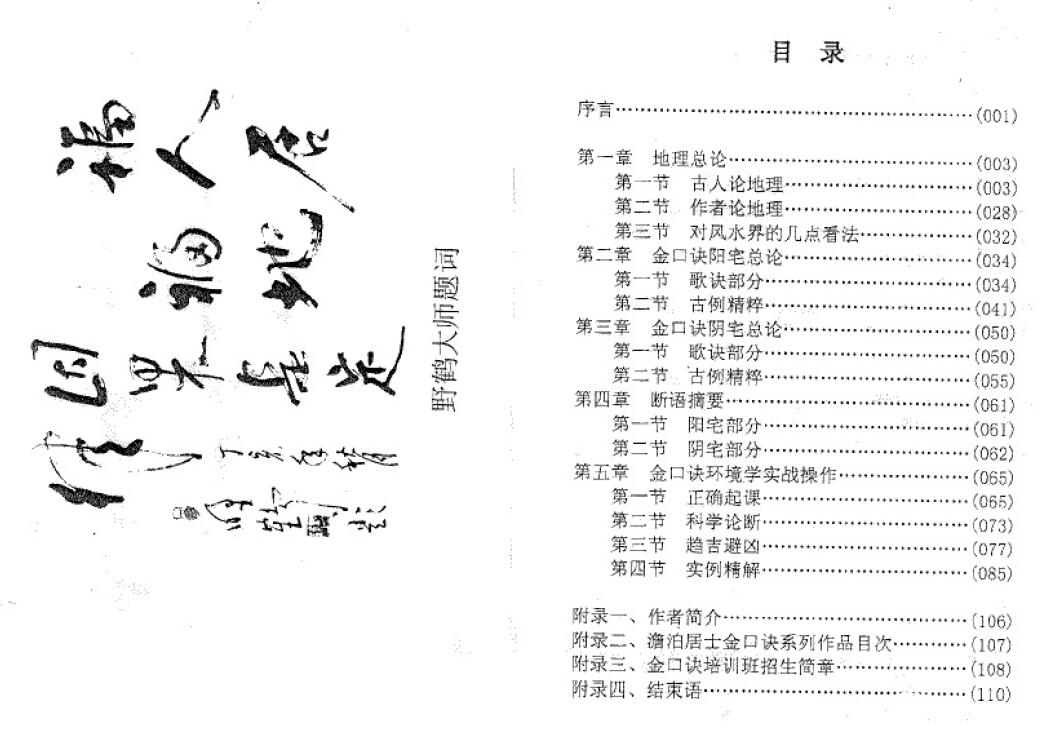 福人居
福地
野鹤大师题词
目 录
序言……(001)
第一章 地理总论……(003)
第一节 古人论地理……(003)
第二节 作者论地理……(028)
第三节 对风水界的几点看法……(032)
第二章 金口诀阳宅总论……(034)
第一节 歌诀部分……(034)
第二节 古例精粹……(041)
第三章 金口诀阴宅总论……(050)
第一节 歌诀部分……(050)
第二节 古例精粹……(055)
第四章 断语摘要……(061)
第一节 阳宅部分……(061)
第二节 阴宅部分……(062)
第五章 金口诀环境学实战操作……(065)
第一节 正确起课……(065)
第二节 科学论断……(073)
第三节 趋吉避凶……(077)
第四节 实例精解……(085)
附录一、作者简介……(106)
附录二、澹泊居士金口诀系列作品目次……(107)
附录三、金口诀培训班招生简章……(108)
附录四、结束语……(110)